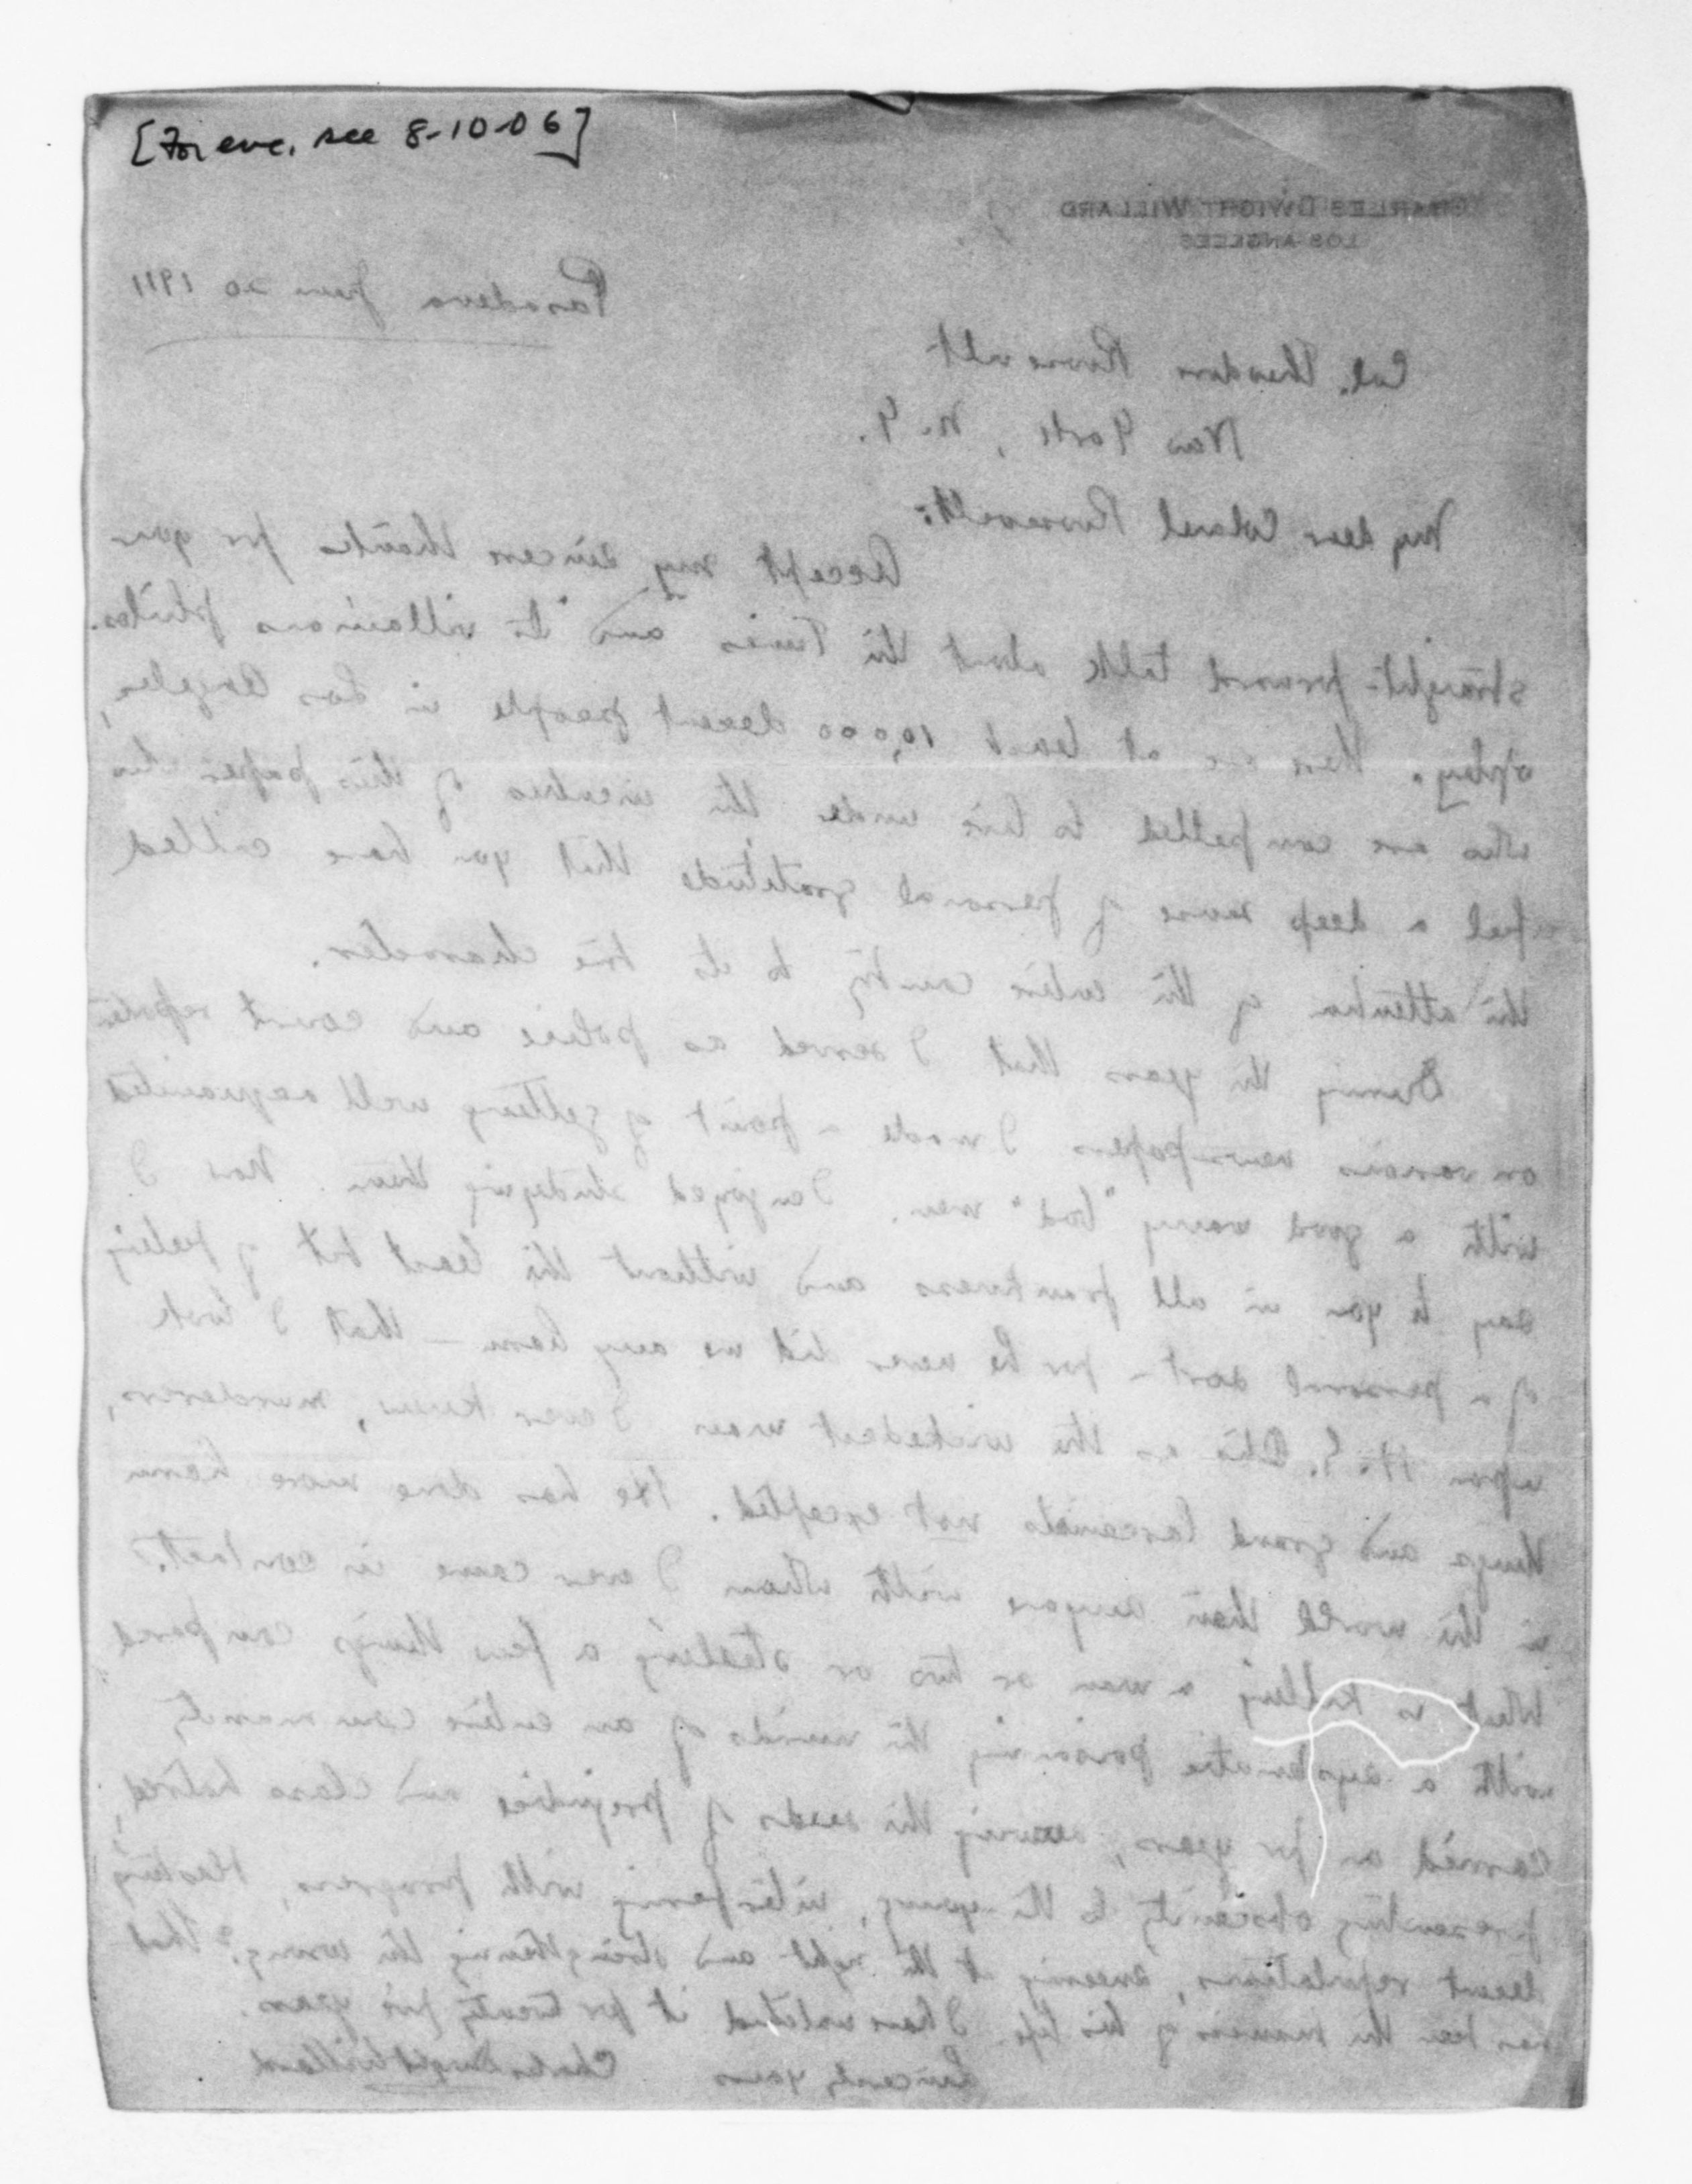 [For enc. see 8-10-06]
CHARLES DWIGHT WILLARD
LOS ANGELES
Pasadena June 20 1911
Col. Theodore Roosevelt
New York, N.Y.
My dear Colonel Roosevelt:
Accept my sincere thanks for your
straight-forward talk about the Times and its villainous philos-
ophy. There are at least 10,000 decent people in Los Angeles,
who are compelled to live under the of this paper who
feel a deep sense of personal gratitude that you have called
the attention of the entire country to its true character.
During the years that I served as police and court reporter
on various newspapers I made a point of getting well acquainted
with a good many "bad" men. I enjoyed studying them. Now I
say to you in all frankness and without the least bit of feeling
of a personal sort - for he never did me any harm - that I look
upon H. G. Otis as the wickedest man I ever knew, murderers,
thugs and grand not excepted. He has done more harm
in the world than anyone with whom I ever came in contact.
What is killing a man or two or stealing a few things compared
with a systematic poisoning the minds of an entire community
carried on for years, sowing the seeds of prejudice and class hatred,
presenting obscenity to the young, interfering with progress, blasting
decent reputations, sneering at the right and strengthening the wrong? That
has been the business of his life. I have watched it for twenty five years.
Sincerely yours
Charles Dwight Willard